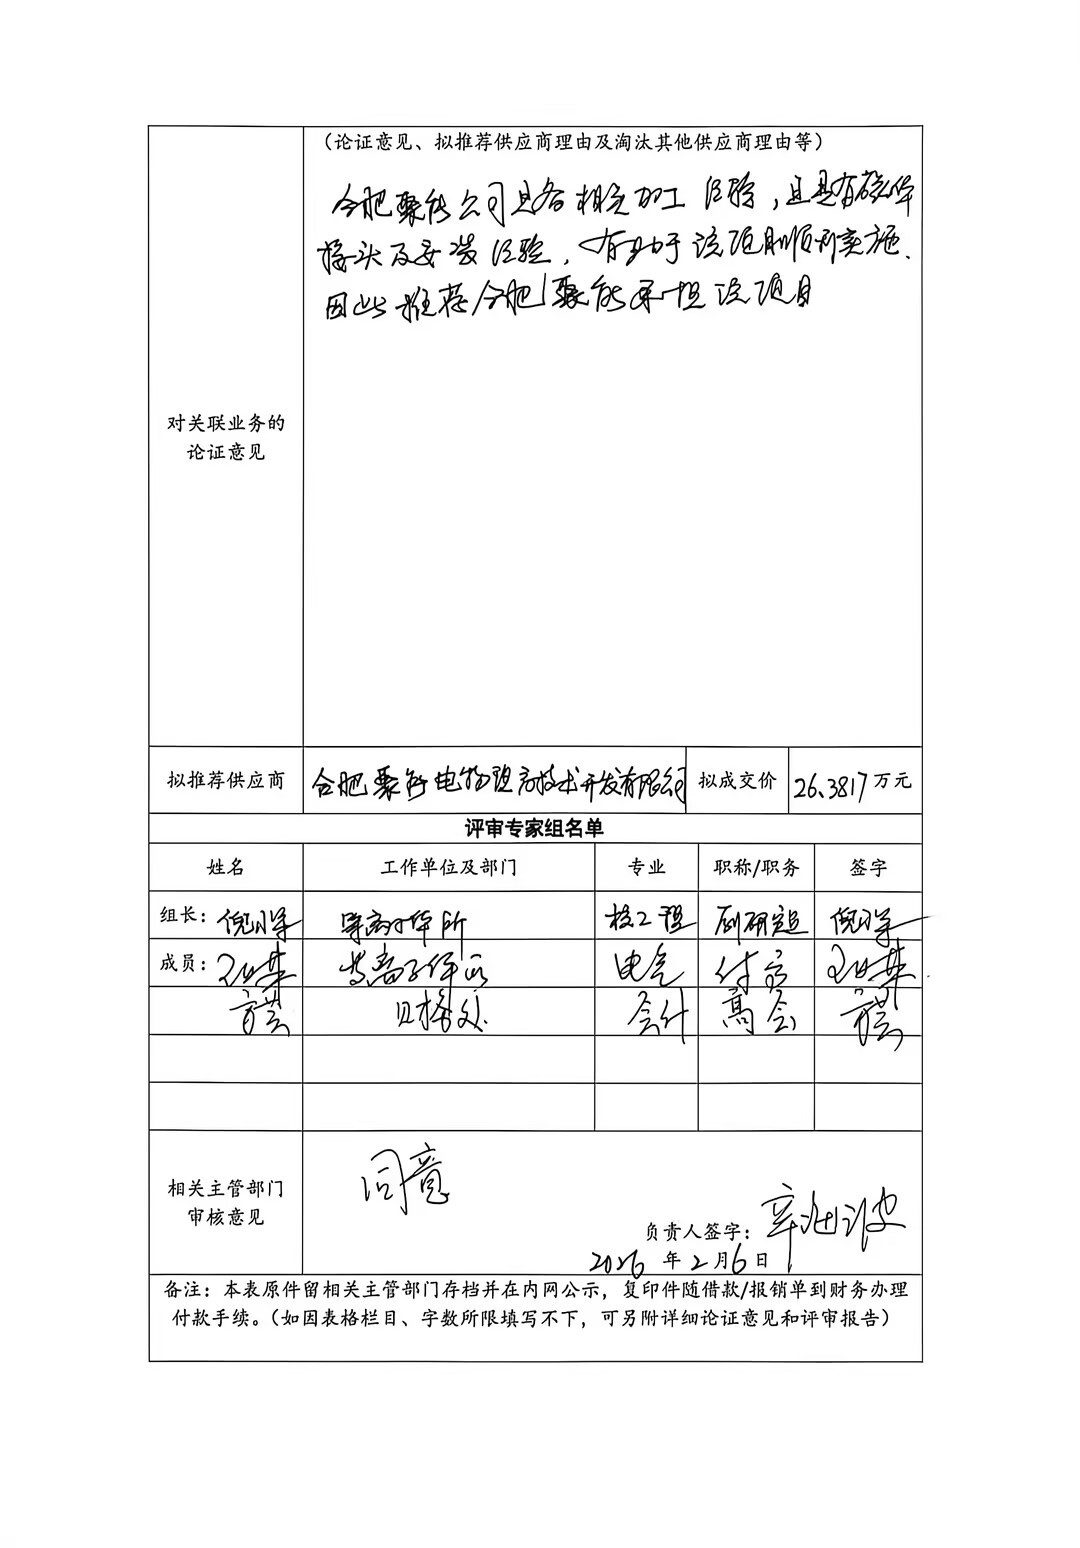 （论证意见、拟推荐供应商理由及淘汰其他供应商理由等）
合肥聚能公司具备相关加工经验，且具有磁体
接头及安装经验，有助于该项目顺利实施。
因此推荐合肥聚能承担该项目
对关联业务的
论证意见
拟推荐供应商 合肥聚能电物理高技术开发有限公司 拟成交价 26.3817万元
评审专家组名单
姓名 工作单位及部门 专业 职称/职务 签字
组长： 等离子体所 核工程 副研究员
成员： 等离子体所 电气 付高
方芸 财务处 会计 高会 方芸
相关主管部门
审核意见
同意
负责人签字：
2026年2月6日
备注：本表原件留相关主管部门存档并在内网公示，复印件随借款/报销单到财务办理
付款手续。（如因表格栏目、字数所限填写不下，可另附详细论证意见和评审报告）